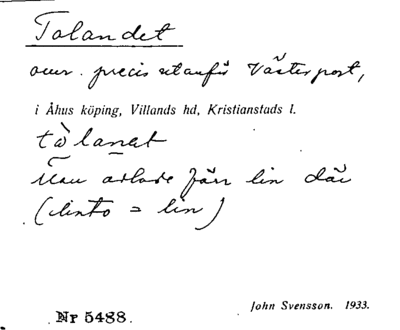 Tolandet
omr. precis utanför Västerport,
i Åhus köping, Villands hd, Kristianstads l.
tòlanət
Man odlade förr lin där
( = lin)
Nr 5488.
John Svensson. 1933.